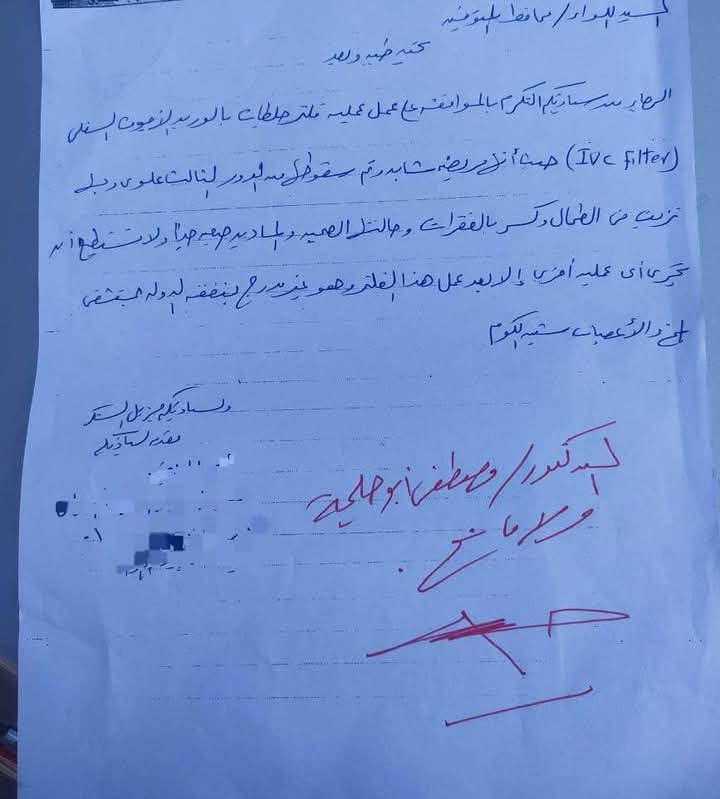 السيد اللواء / محافظ المنوفية
تحية طيبة وبعد
الرجاء من سيادتكم التكرم بالموافقه على عمل عمليه فلتر جلطات بالوريد الاجوف السفلى
(IVC filter) حيث أنى مريضه شابه وتم سقوطى من الدور الثالث علوى وبى
نزيف فى الطحال وكسر بالفقرات وحالتى الصحيه والماديه صعبه جدا ولا تستطيع أن
تجرى أى عمليه أخرى إلا بعد عمل هذا الفلتر وهو غير مدرج بنفقه الدوله بمستشفى
المخ والأعصاب شبين الكوم
ولسيادتكم جزيل الشكر
مقدمه لسيادتكم
السيد الدكتور / مصطفى أبو حليمة
ولا مانع